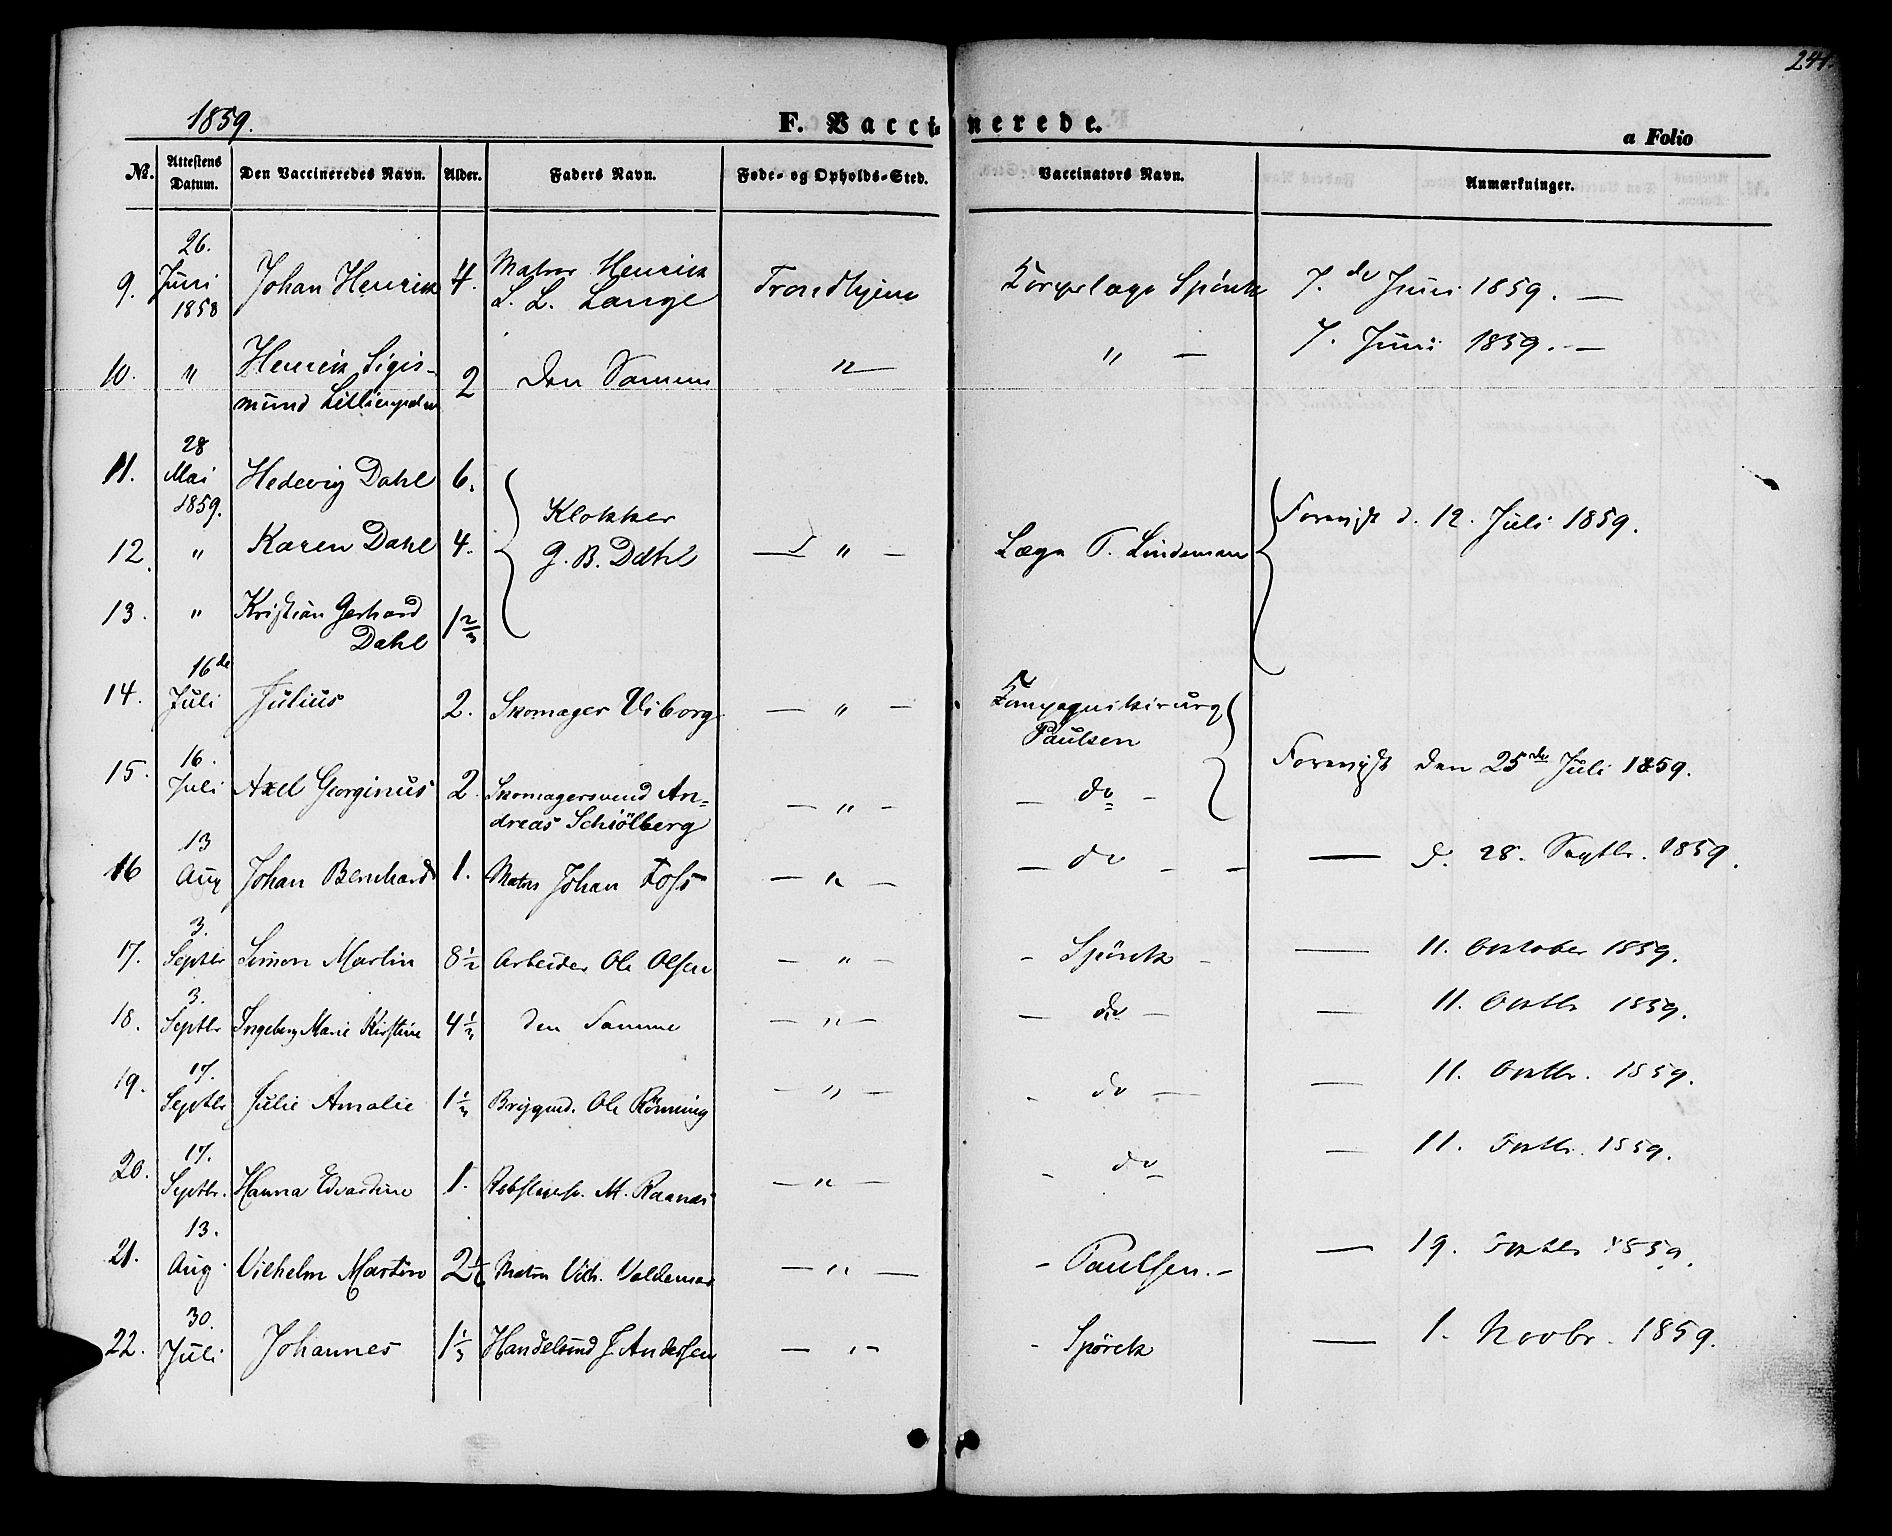 241.
1859.
F. Vaccinerede.
a Folio
No. Attestens Datum. Den Vaccineredes Navn. Alder. Faders Navn. Føde- og Opholds-Sted. Vaccinators Navn. Anmærkninger.
9. 26. Juni 1858 Johan Henrick 4. Matros Henrick L. L. Lange Trondhjem Korpslæge Spörck 7. de Juni 1859. —
10. " Henrick Sigismund 2 den Samme " — " — 7. Juni 1859. —
11. 28 Mai 1859. Hedevig Dahl 6. Klokker G. B. Dahl — " — Læge T. Lindeman Forevist d. 12. Juli 1859.
12. " Karen Dahl 4.
13. " Kristian Gerhard Dahl 1 2/3
14. 16de Juli Julius 2. Skomager Viborg — " — Kompagnikirurg Paulsen Forevist den 25de Juli 1859.
15. 16. Juli Axel Georginus 2. Skomagersvend Andreas Schiölberg — " — — do —
16 13 Aug Johan Bernhard 1. Matros Johan Foss — " — — do — — — d. 28. Septbr. 1859.
17. 3. Septbr Simon Martin 8 1/2 Arbeider Ole Olsen — " — - Spörck - — 11. October 1859.
18. 3. Septbr Ingeborg Marie Kirstine 4 1/2 den Samme — " — — do — — 11. Octbr 1859.
19. 17. Septbr Julie Amalie 1 1/2 Brygmd. Ole Rönning — " — - do — — 11. Octbr. 1859.
20. 17. Septbr. Hanna Edvardine 1. M. Raanæs — " — - do - — 11. Octbr. 1859.
21. 13. Aug. Vilhelm Martin 2 1/2 Matros Vilh. Valdemar — " — - Paulsen. - — 19. Octbr 1859.
22. 30. Juli Johannes 1 1/3 J. Andersen — " — - Spörck — 1. Novbr. 1859.